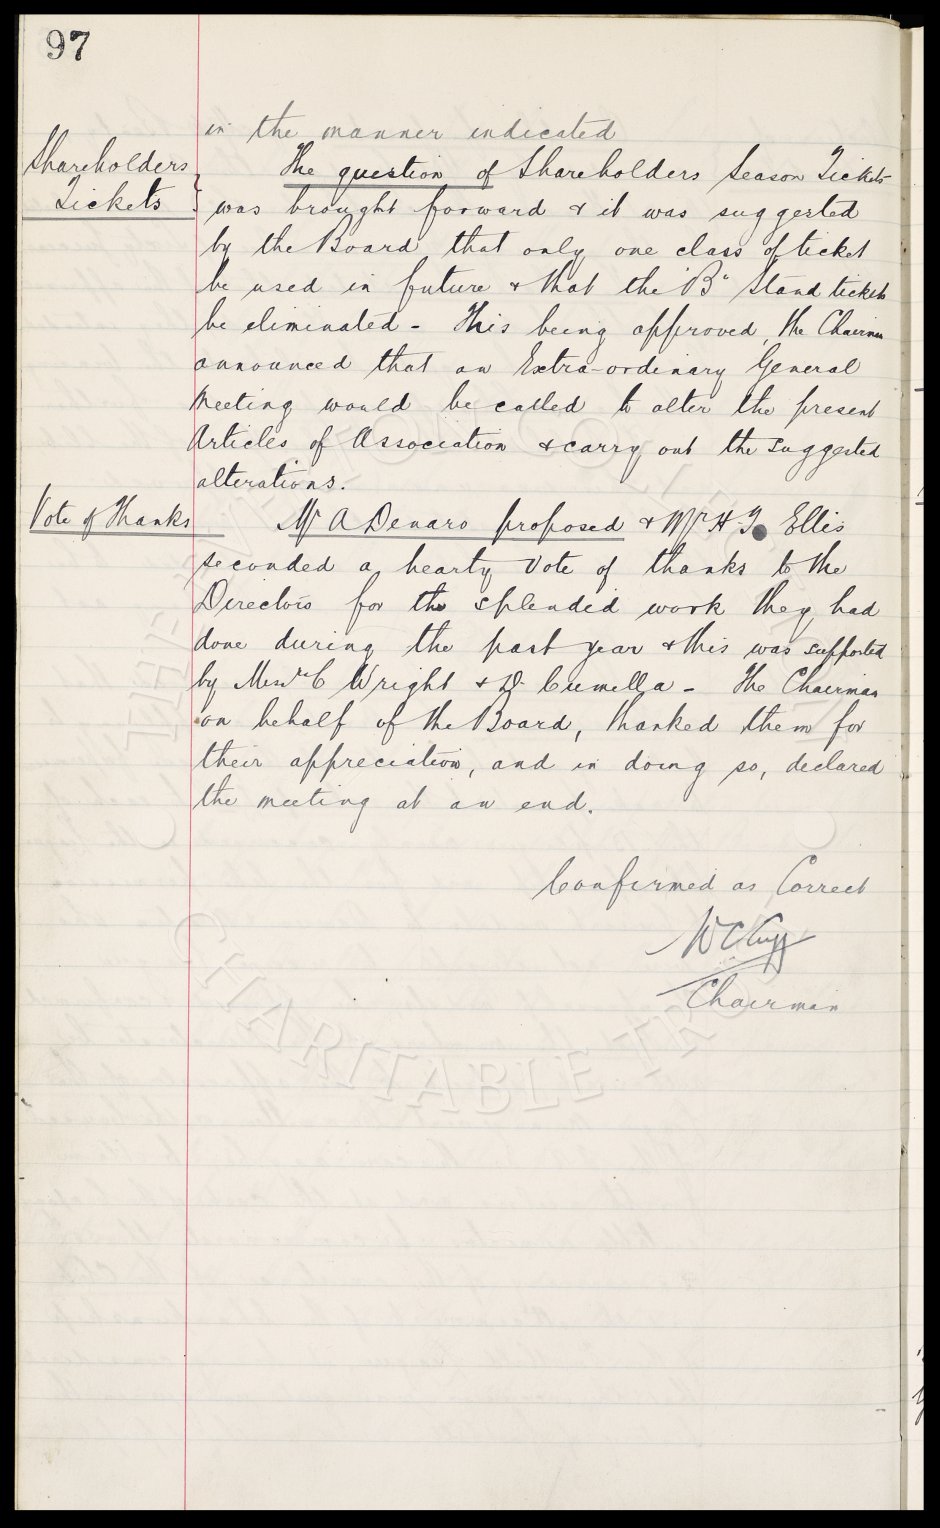 97
in the manner indicated
Shareholders
Tickets
The question of Shareholders Season Tickets
was brought forward & it was suggested
by the Board that only one class of ticket
be used in future & that the "B" Stand tickets
be eliminated - This being approved, the Chairman
announced that an Extra-ordinary General
Meeting would be called to alter the present
Articles of Association & carry out the suggested
alterations.
Vote of Thanks
Mr A Denaro proposed & Mr H. Ellis
seconded a hearty Vote of thanks to the
Directors for the splendid work they had
done during the past year & this was supported
by Messrs C Wright & D. Cumella - The Chairman
on behalf of the Board, thanked them for
their appreciation, and in doing so, declared
the meeting at an end.
Confirmed as Correct
W C Cuff
Chairman
THE EVERTON COLLECTION
CHARITABLE TRUST